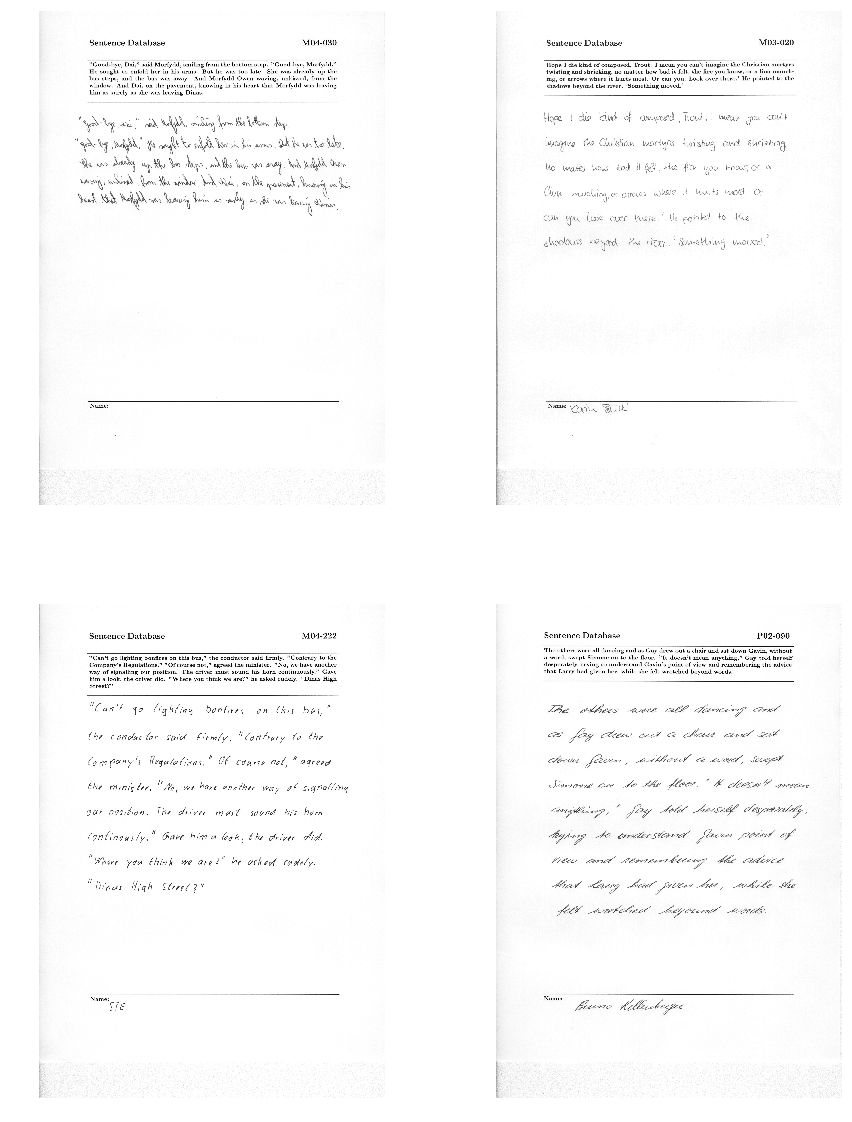 Sentence Database M04-030
"Good-bye, Dai," said Morfydd, smiling from the bottom step. "Good-bye, Morfydd."
He sought to enfold her in his arms. But he was too late. She was already up the
bus steps, and the bus was away. And Morfydd Owen waving, unkissed, from the
window. And Dai, on the pavement, knowing in his heart that Morfydd was leaving
him as surely as she was leaving Dinas.
"Good bye Dai," said Morfydd, smiling from the bottom step.
"Good bye, Morfydd." He sought to enfold her in his arms. But he was too late.
She was already up the bus steps, and the bus was away. And Morfydd Owen
waving, unkissed, from the window. And Dai, on the pavement, knowing in his
heart that Morfydd was leaving him as surely as she was leaving Dinas.
Name:
Sentence Database M03-020
Hope I die kind of composed, Trout. I mean you can't imagine the Christian martyrs
twisting and shrieking, no matter how bad it felt, the fire you know, or a lion munch-
ing, or arrows where it hurts most. Or can you. Look over there.' He pointed to the
shadows beyond the river. 'Something moved.'
Hope I die kind of composed, Trout. I mean you can't
imagine the Christian martyrs twisting and shrieking
no matter how bad it felt, the fire you know, or a
lion munching, or arrows where it hurts most or
can you look over there.' He pointed to the
shadows beyond the river. 'Something moved.'
Name:
Sentence Database M04-222
"Can't go lighting bonfires on this bus," the conductor said firmly. "Contrary to the
Company's Regulations." "Of course not," agreed the minister. "No, we have another
way of signalling our position. The driver must sound his horn continuously." Gave
him a look, the driver did. "Where you think we are?" he asked coldly. "Dinas High
Street?"
"Can't go lighting bonfires on this bus,"
the conductor said firmly. "Contrary to the
Company's Regulations." Of course not," agreed
the minister. "No, we have another way of signalling
our position. The driver must sound his horn
continously." Gave him a look, the driver did.
"Where you think we are?" he asked coldly.
"Dinas High Street?"
Name: STE
Sentence Database P02-090
The others were all dancing and as Gay drew out a chair and sat down Gavin, without
a word, swept Simone on to the floor. "It doesn't mean anything," Gay told herself
desperately, trying to understand Gavin's point of view and remembering the advice
that Larry had given her, while she felt wretched beyond words.
The others were all dancing and
as Gay drew out a chair and sat
down Gavin, without a word, swept
Simone on to the floor. "It doesn't mean
anything," Gay told herself desperately,
trying to understand Gavin point of
view and remembering the advice
that Larry had given her, while she
felt wretched beyound words.
Name: Bruno Kellenberger